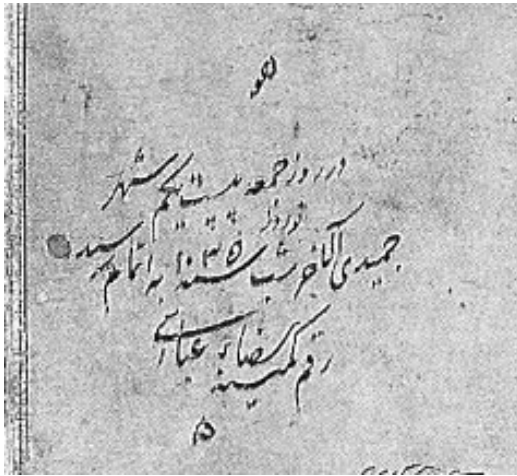 هو
در روز جمعه بیست یکم شهر
نوروز
جمیدی الآخر شب سنه ۱۰۳۵ به اتمام رسید
رقم کمینه رضاء عباسی